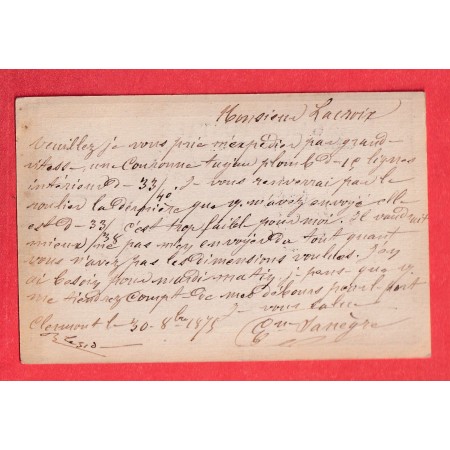 Monsieur Lacroix
Veuillez je vous prie m'expédier par grand
vitesse une Couronne tuyau plomb D- 18 lignes
intérieur d- 33/40. Je vous renverrai par le
roulier la dernière que v. m'avez envoyé elle
est d- 33/38 c'est trop faible pour moi. Il vaudrait
mieux ne pas m'en envoyer du tout quant
vous n'avez pas les dimensions voulues. J'en
ai besoin pour mardi matin, je pense que v.
me tiendrez compt de mes débours pour port
Je vous salue
Clermont le 30 - 8bre 1875